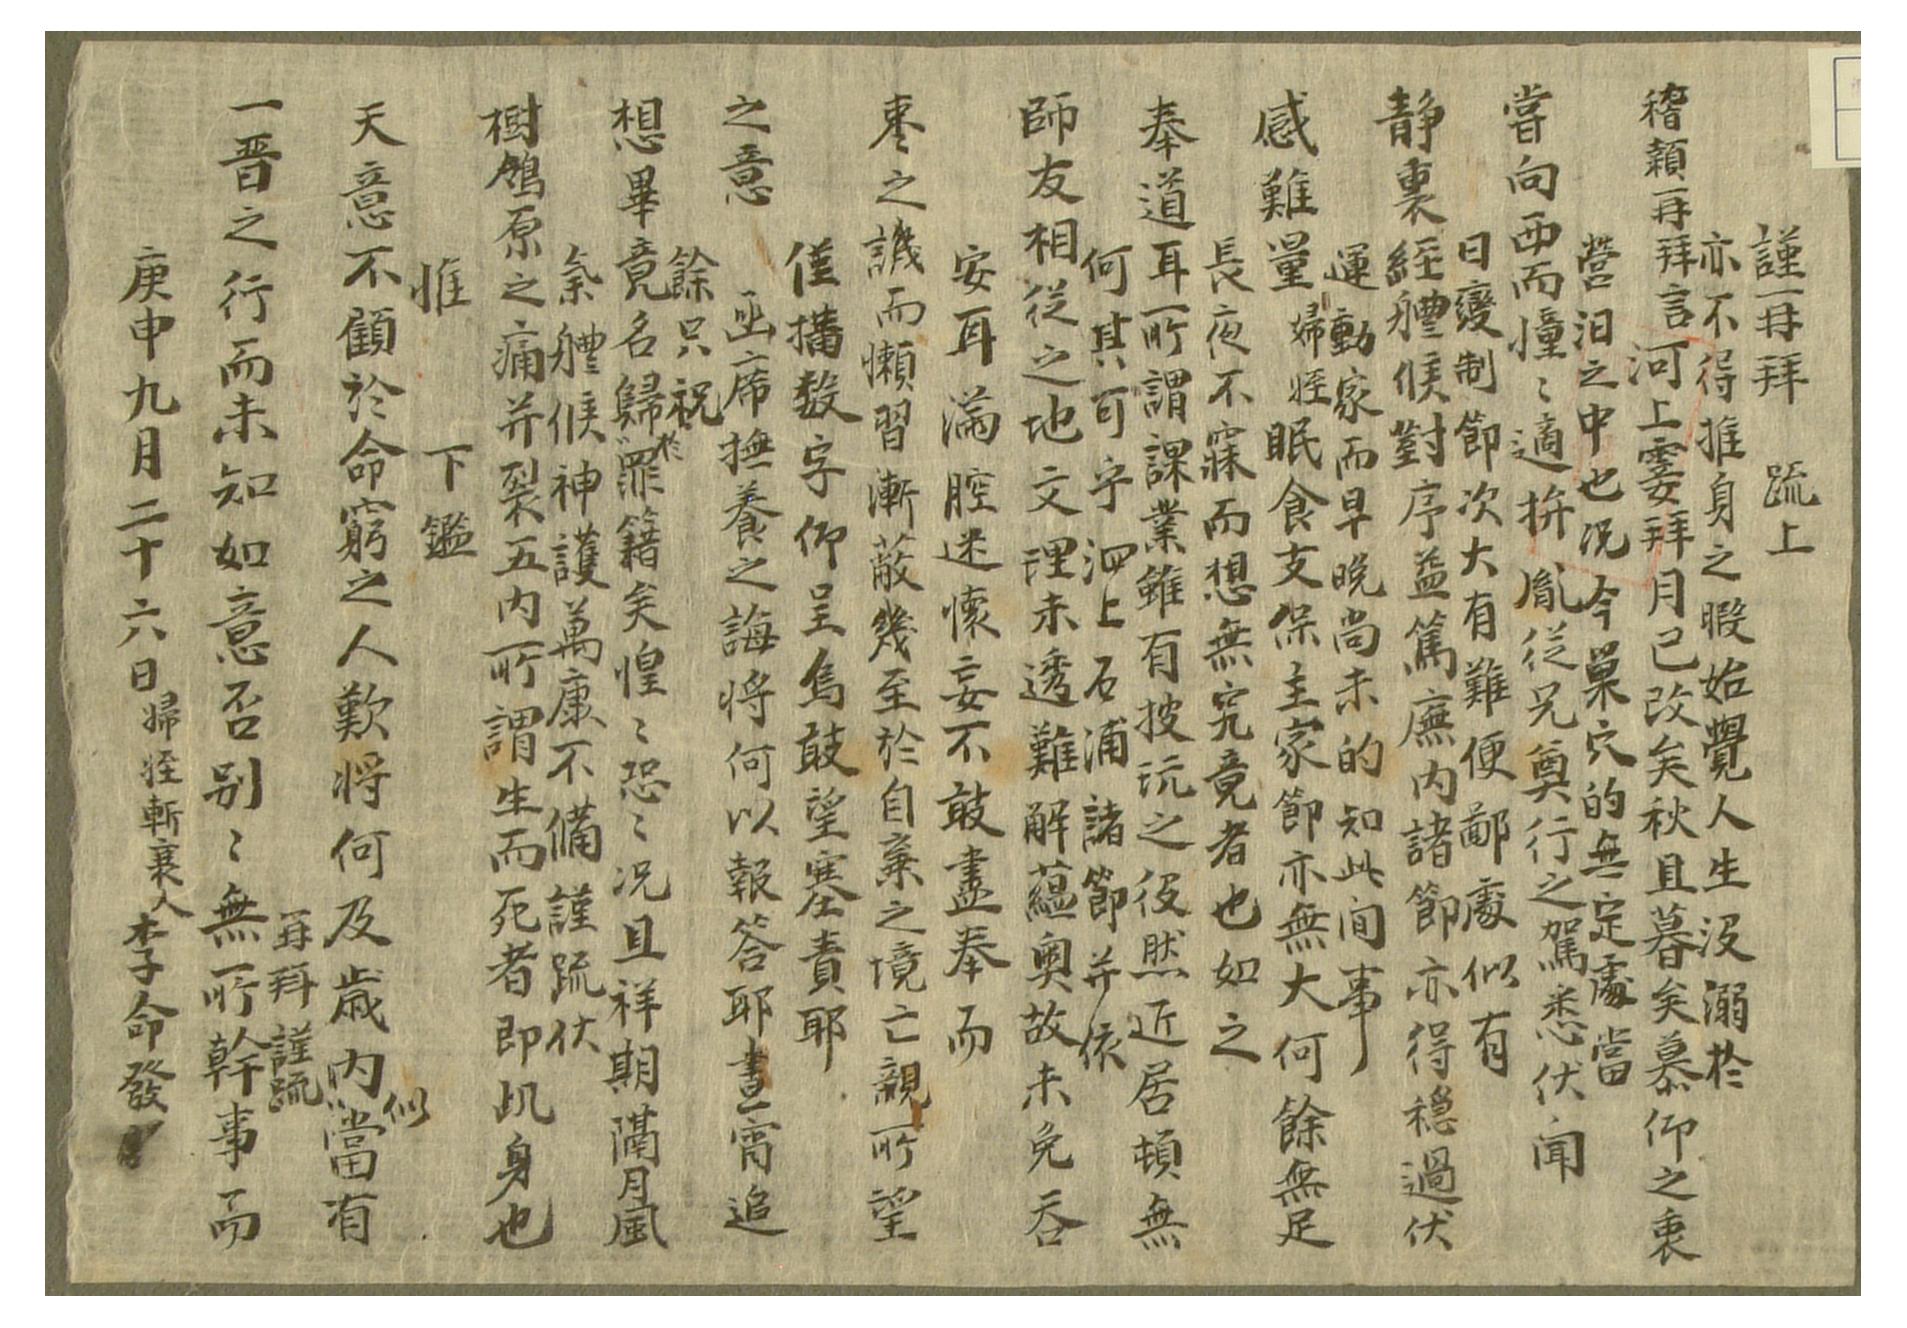 稽顙再拜言河上霎拜月已改矣秋且暮矣慕仰之衷
嘗向西而憧〻適拚胤從兄奠行之駕悉伏聞
靜裏經軆候對序益篤廡內諸節亦得穩過伏
感難量婦姪眠食支保主家節亦無大何餘無足
奉道耳所謂課業雖有披玩之役然近居頓無
師友相從之地文理未透難解蘊奧故未免呑
棗之譏而懶習漸蔽幾至於自棄之境亡親所望
之意 函席撫養之誨將何以報答耶晝宵追
想畢竟名歸於罪籍矣惶〻恐〻况且祥期隔月風
樹鴒原之痛幷裂五內所謂生而死者卽此身也
天意不顧於命窮之人歎將何及歲內似當有
一晋之行而未知如意否別〻無所幹事而
亦不得推身之暇始覺人生沒溺於
營汨之中也况今巢穴的無定處當
日變制節次大有難便鄙處似有
運動家而早晩尙未的知此間事
長夜不寐而想無究竟者也如之
何其可乎泗上石浦諸節幷依
安耳滿腔迷懷妄不敢盡奉而
僅搆數字仰呈烏敢望塞責耶
餘只祝
氣軆候神護萬康不備謹疏伏
惟 下鑑
謹再拜 疏上
庚申九月二十六日婦姪斬衰人李命發
再拜謹疏